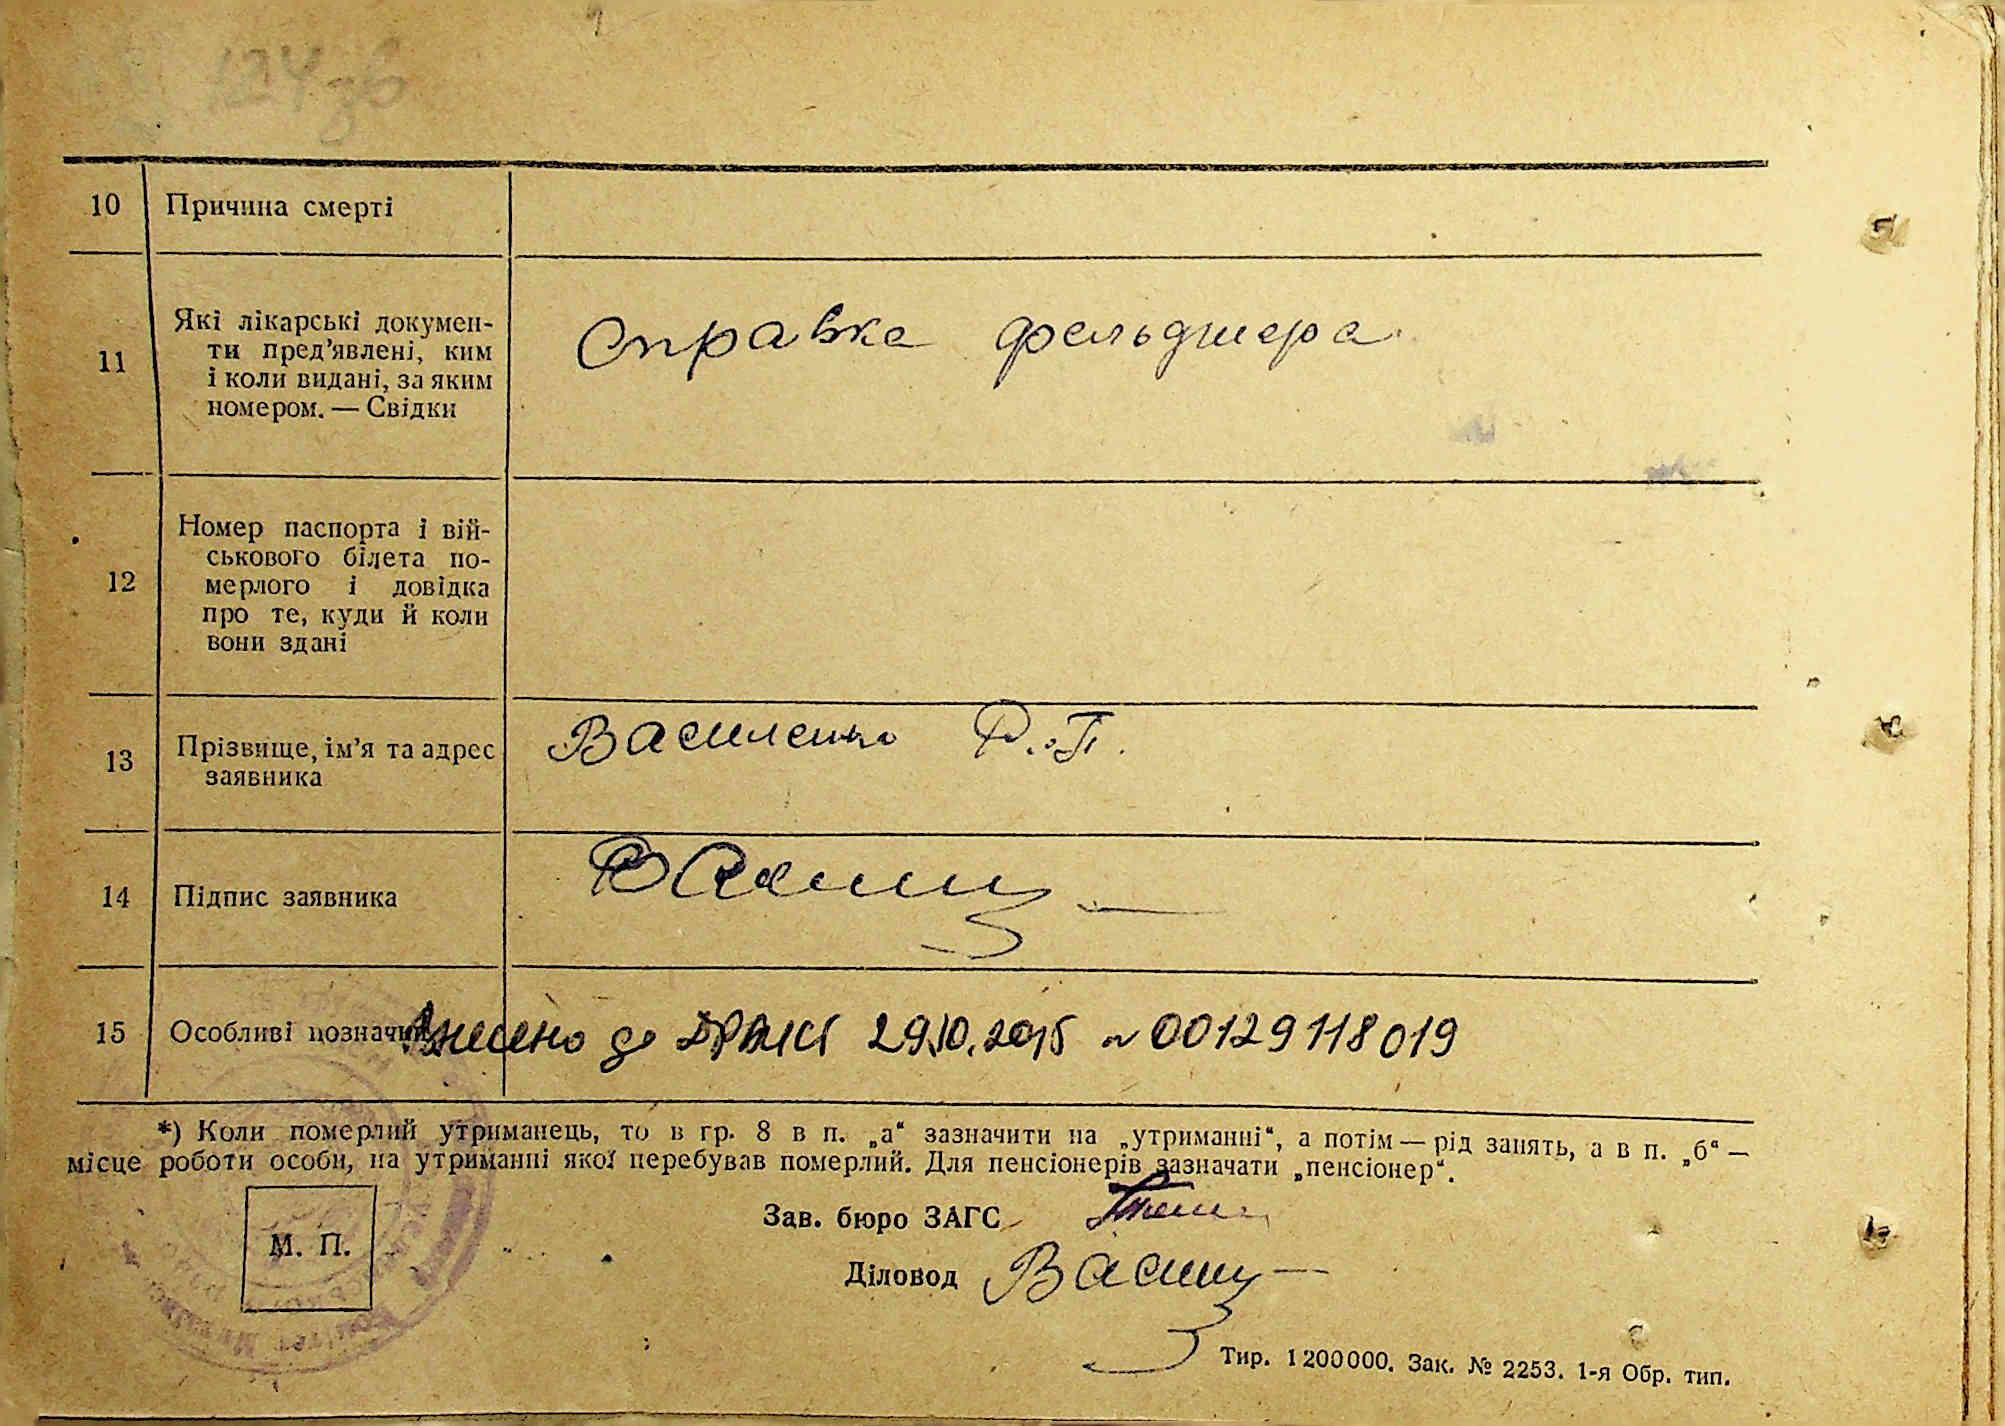 124 зв
10 Причина смерті
11 Які лікарські докумен-
ти пред’явлені, ким
і коли видані, за яким
номером. — Свідки
Справка фельдшера
12 Номер паспорта і вій-
ськового білета по-
мерлого і довідка
про те, куди й коли
вони здані
13 Прізвище, ім’я та адрес
заявника
Василенко Ф. П.
14 Підпис заявника
15 Особливі позначки
Внесено до ДРАЦС 29.10.2015 № 00129118019
*) Коли померлий утриманець, то в гр. 8 в п. „а“ зазначити на „утриманні“, а потім — рід занять, а в п. „б“ —
місце роботи особи, на утриманні якої перебував померлий. Для пенсіонерів зазначати „пенсіонер“.
М. П.
Зав. бюро ЗАГС
Діловод
Тир. 1200000. Зак. № 2253. 1-я Обр. тип.